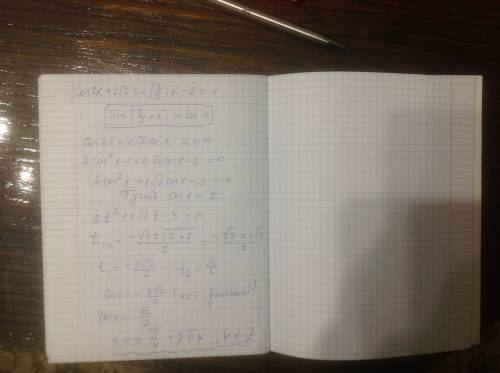 cos2x + 2√2 sin(π/2 + x) - 2 = 0
sin(π/2 + x) = cos x
cos2x + 2√2 cosx - 2 = 0
2cos²x - 1 + 2√2 cosx - 2 = 0
2cos²x + 2√2 cosx - 3 = 0
Пусть cosx = t
2t² + 2√2 t - 3 = 0
t₁,₂ = (-√2 ± √(2+6))/2 = (-√2 ± 2√2)/2
t₁ = -3√2/2 ; t₂ = √2/2
cosx = -3√2/2 (нет решений)
cosx = √2/2
x = ± π/4 + 2πk, k ∈ Z